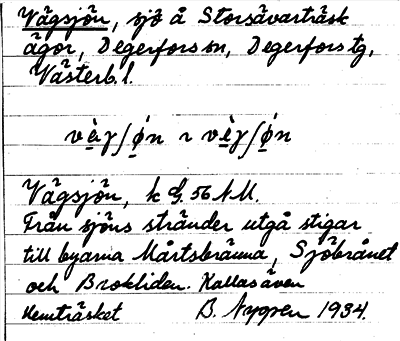 Vägsjön, sjö å Storsävarträsk
ägor, Degerfors sn, Degerfors tg,
Västerb. l.
vè̱gʃó̱n ~ vè̱gʃó̱n
Vägsjön, k G. 56 NM.
Från sjöns stränder utgå stigar
till byarna Mårtsbränna, Sjöbrånet
och Brokliden. Kallas även
Hemträsket B. Nygren 1934.